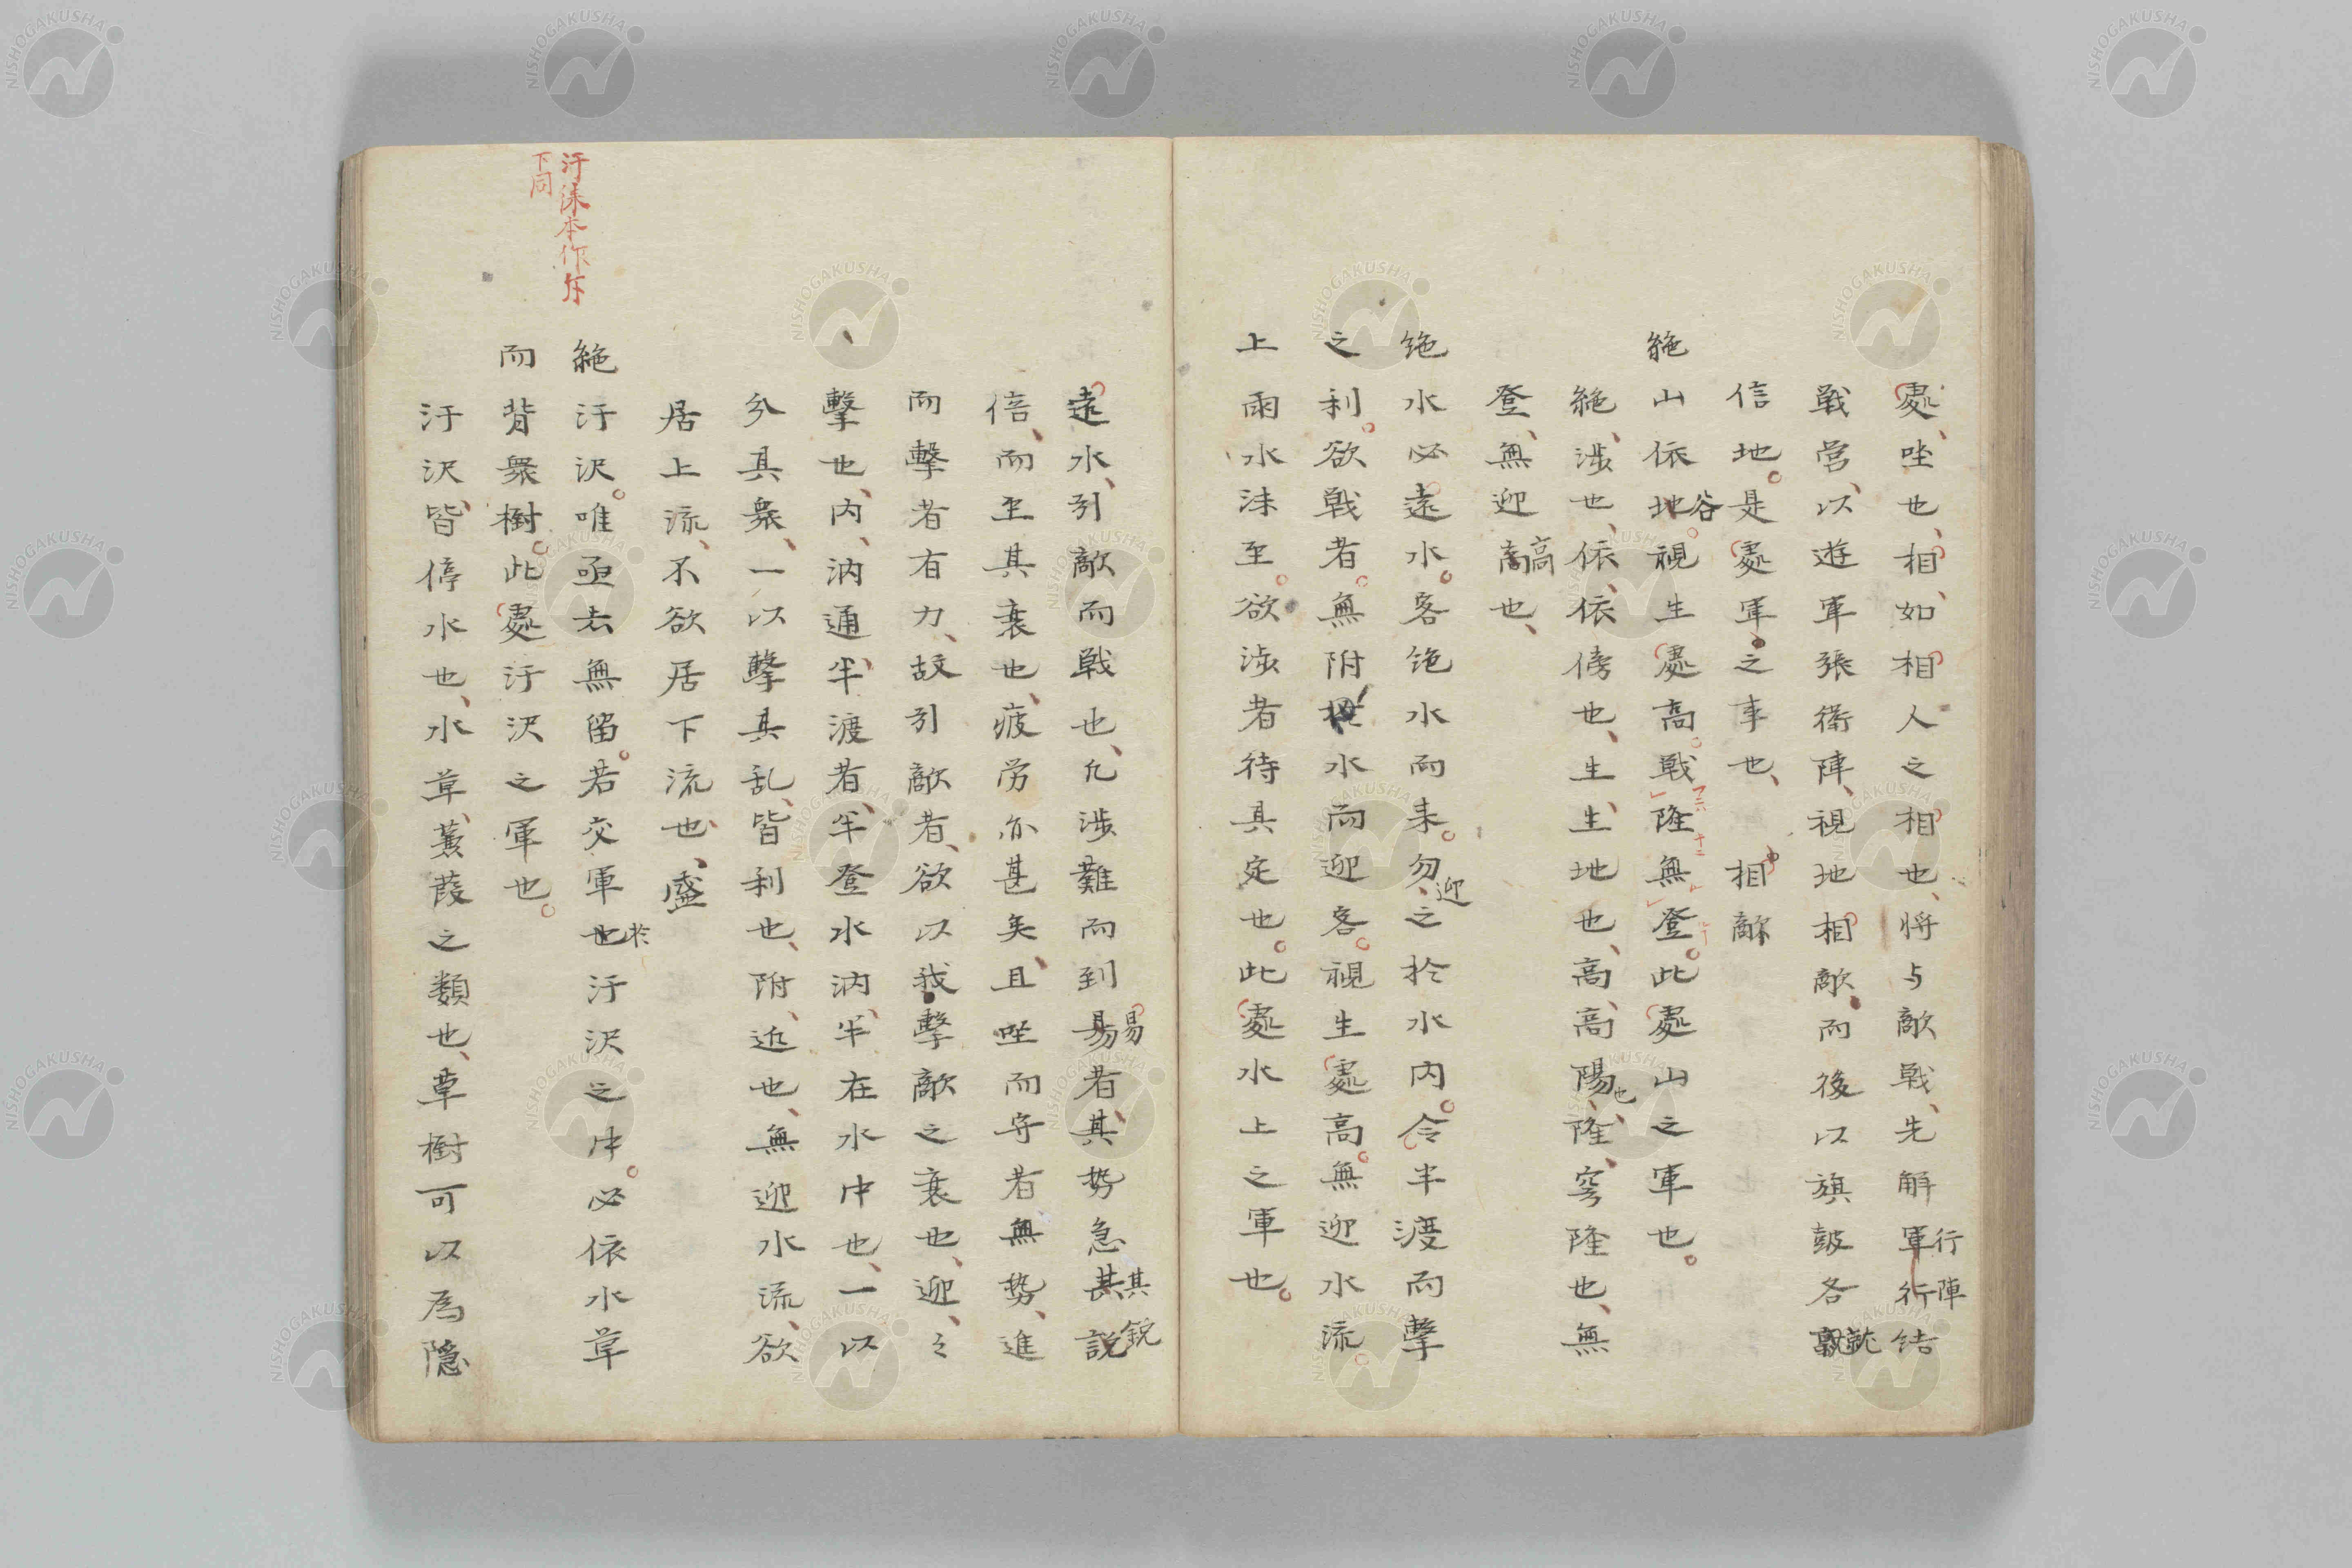 處、㘴也、相、如相人之相也、将与敵戦、先解軍行結
行陣
戦営、以遊軍張衛陣、視地相敵而後以旗鼓各
就
信地。是處軍之事也、 相敵
絶山依地視生處高。戦隆無登。此處山之軍也。
谷
絶、渉也、依、依傍也、生、生地也、高、高陽、隆、穹隆也、無
也
登、無迎高也、
高
絶水必遠水。客絶水而来。勿之於水内。令半渡而擊
迎
之利。欲戦者。無附水而迎客。視生處高。無迎水流。
上雨水沫至。欲渉者待其定也。此處水上之軍也。
遠水、引敵而戦也、凡渉難而到易者、其勢急甚説
易
其鋭
倍、而至其衰也、疲労亦甚矣、且㘴而守者無勢、進
而擊者有力、故引敵者、欲以我擊敵之衰也、迎、々
擊也、内、汭通、半渡者、半登水汭、半在水中也、一以
分其衆、一以擊其乱、皆利也、附、近也、無迎水流、欲
居上流、不欲居下流也、盛
絶汙沢。唯亟去無留。若交軍也汙沢之中。必依水草
於
而背衆樹。此處汙沢之軍也。
汙沢、皆停水也、水草、蒹葭之類也、草樹可以為隠
汙洙本作斥
下同
NISHOGAKUSHA